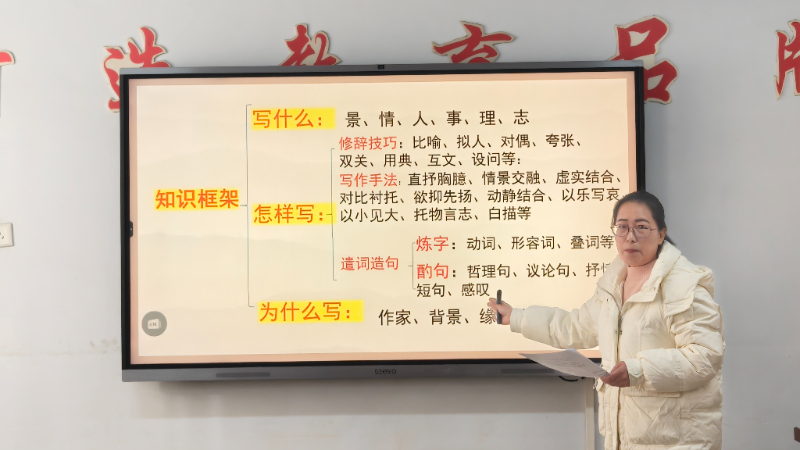 造 教 育 品 牌
知识框架
写什么： 景、情、人、事、理、志
怎样写：
修辞技巧：比喻、拟人、对偶、夸张、
双关、用典、互文、设问等：
写作手法：直抒胸臆、情景交融、虚实结合、
对比衬托、欲抑先扬、动静结合、以乐写哀
以小见大、托物言志、白描等
遣词造句
炼字：动词、形容词、叠词等
酌句：哲理句、议论句、抒
短句、感叹
为什么写： 作家、背景、缘
seewo